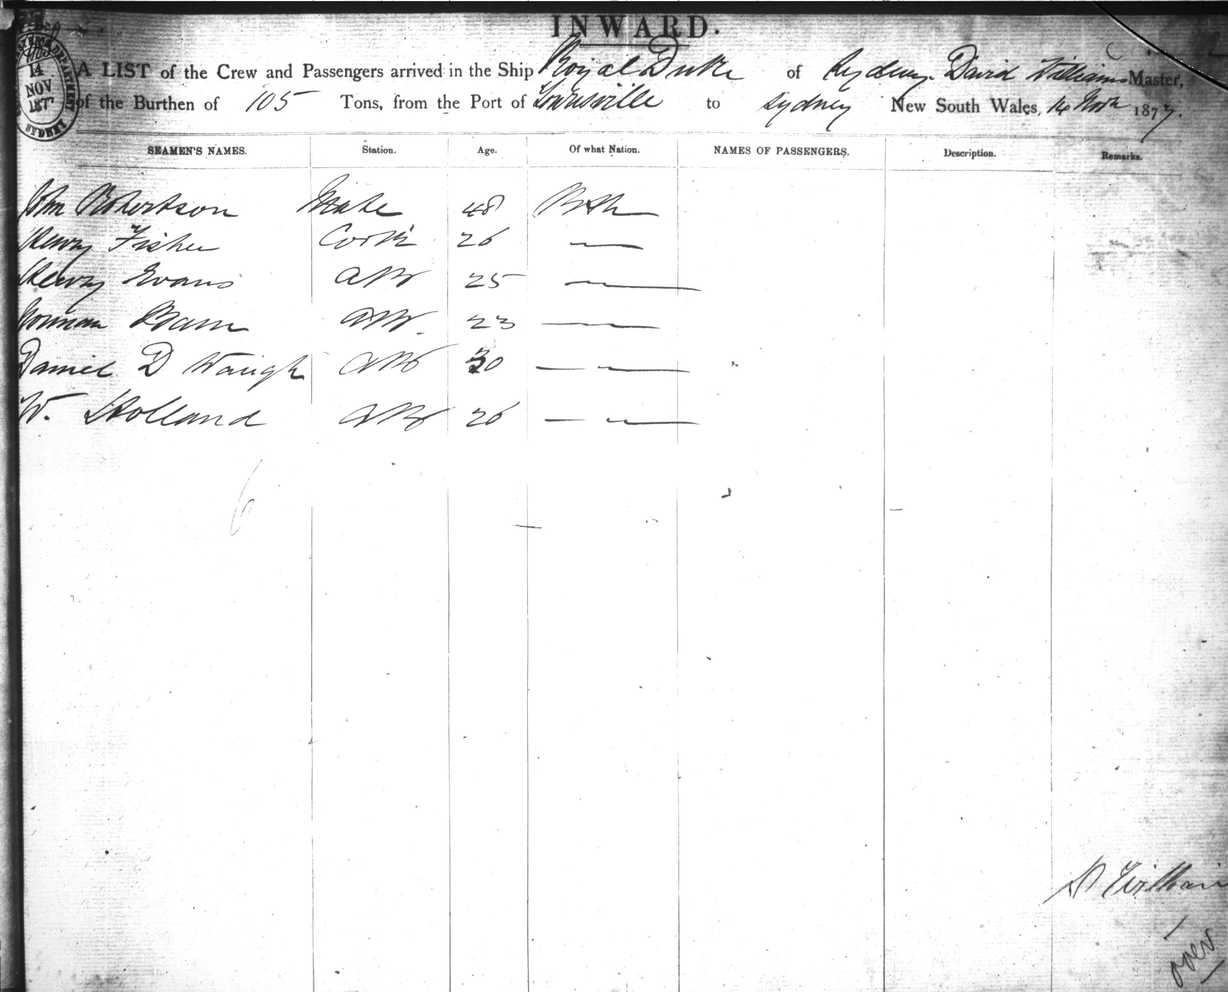 INWARD.
14
NOV
1877
SYDNEY
A LIST of the Crew and Passengers arrived in the Ship Royal Duke of Sydney. David Williams Master,
of the Burthen of 105 Tons, from the Port of Townsville to Sydney New South Wales, 14 Novr 1877.
SEAMEN'S NAMES. Station. Age. Of what Nation. NAMES OF PASSENGERS. Description. Remarks.
John Robertson Mate 48 Bsh
Henry Fisher Cook 26 —
Henry Evans AB 25 —
Norman AB. 23 —
Daniel D Waugh AB 30 — —
W. Holland AB 26 — —
6
D William
over